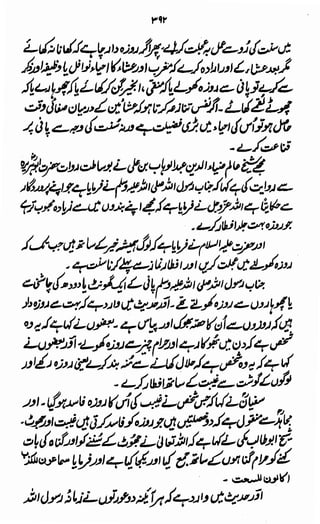 ۳۹۲
میں سنت کی رو سے عمل بہ عجلت کر لے۔ پھر اگر روزہ دار چاہے کہ کھانا نہ کھائے
مگر بعد عشاء کے اور ارادہ کرے کہ مغرب اور عشاء کا احیاء نوافل یا وظیفہ اور ذکر
سے کرے تو پانی سے روزہ کھولے یا کہ منقیٰ، انجیر گن کر کھائے یا کہ چھوہارے یا کہ
چھوٹے لقمے کھائے۔ اگر نفس تنازعہ کرتا ہو کہ عشائین کے درمیان صفائی وقت
حاصل ہو تو اس کی احیاء میں بڑی فضیلت ہے ورنہ سنت کی وجہ سے پانی پر
قناعت کرے۔
مجھے شیخ عالم ضیاء الدین عبدالوہاب بن علی نے بوساطت رواۃ حضرت ابوہریرہؓ
سے روایت کی ہے کہا کہ جناب رسول اللہ صلی اللہ علیہ وسلم نے فرمایا ہے جو اپنے پروردگار
سے حکایتاً ہے اللہ عزوجل نے فرمایا ہے کہ مجھے اپنے بندوں میں سے زیادہ محبوب تر ہے
جو روزہ بہت جلد افطار کرے۔
اور حضرت علیہ السلام نے فرمایا ہے کہ لوگ ہمیشہ خیر کے ساتھ ہیں جب تک کہ
روزہ کھولنے میں عجلت کریں اور افطار نماز سے پہلے کرنا سنت ہے۔
جناب رسول اللہ صلی اللہ علیہ وسلم پانی کے ایک گھونٹ یا دودھ کی چاشنی سے
یا چھوہاروں سے روزہ کھولتے تھے۔ اور حدیث میں وارد ہے کہ بہت سے روزہ دار
ہیں کہ روزوں سے ان کا حصہ بھوک اور پیاس ہے۔ بعضوں نے کہا ہے کہ یہ وہ
شخص ہے کہ دن میں بھوکا رہے اور حرام چیز سے روزہ کھولے۔ اور بعضوں نے
کہا ہے کہ یہ وہ شخص ہے کہ حلال کھانے سے منہ بند کرے یعنی روزہ رکھے اور
لوگوں کے گوشت سے غیبت کے ساتھ افطار کرے۔
سفیانؒ نے کہا کہ جس شخص نے غیبت کی اس کا روزہ فاسد ہو گیا۔ اور
مجاہدؒ سے منقول ہے کہ دو خصلتیں ہیں جو روزہ کو فاسد کرتی ہیں غیبت اور جھوٹ۔
شیخ ابو طالب مکی نے کہا ہے کہ اللہ تعالیٰ نے جھوٹ کے سننے کو اور گناہ کی بات
کہنے کو حرام گناہوں کے ساتھ جمع کیا اور یکجا کیا ہے اور فرمایا سماعون للکذب
اکالون للسحت۔
اور حدیث میں وارد ہے کہ ہر آئینہ دو عورتوں نے زمانہ رسول اللہ